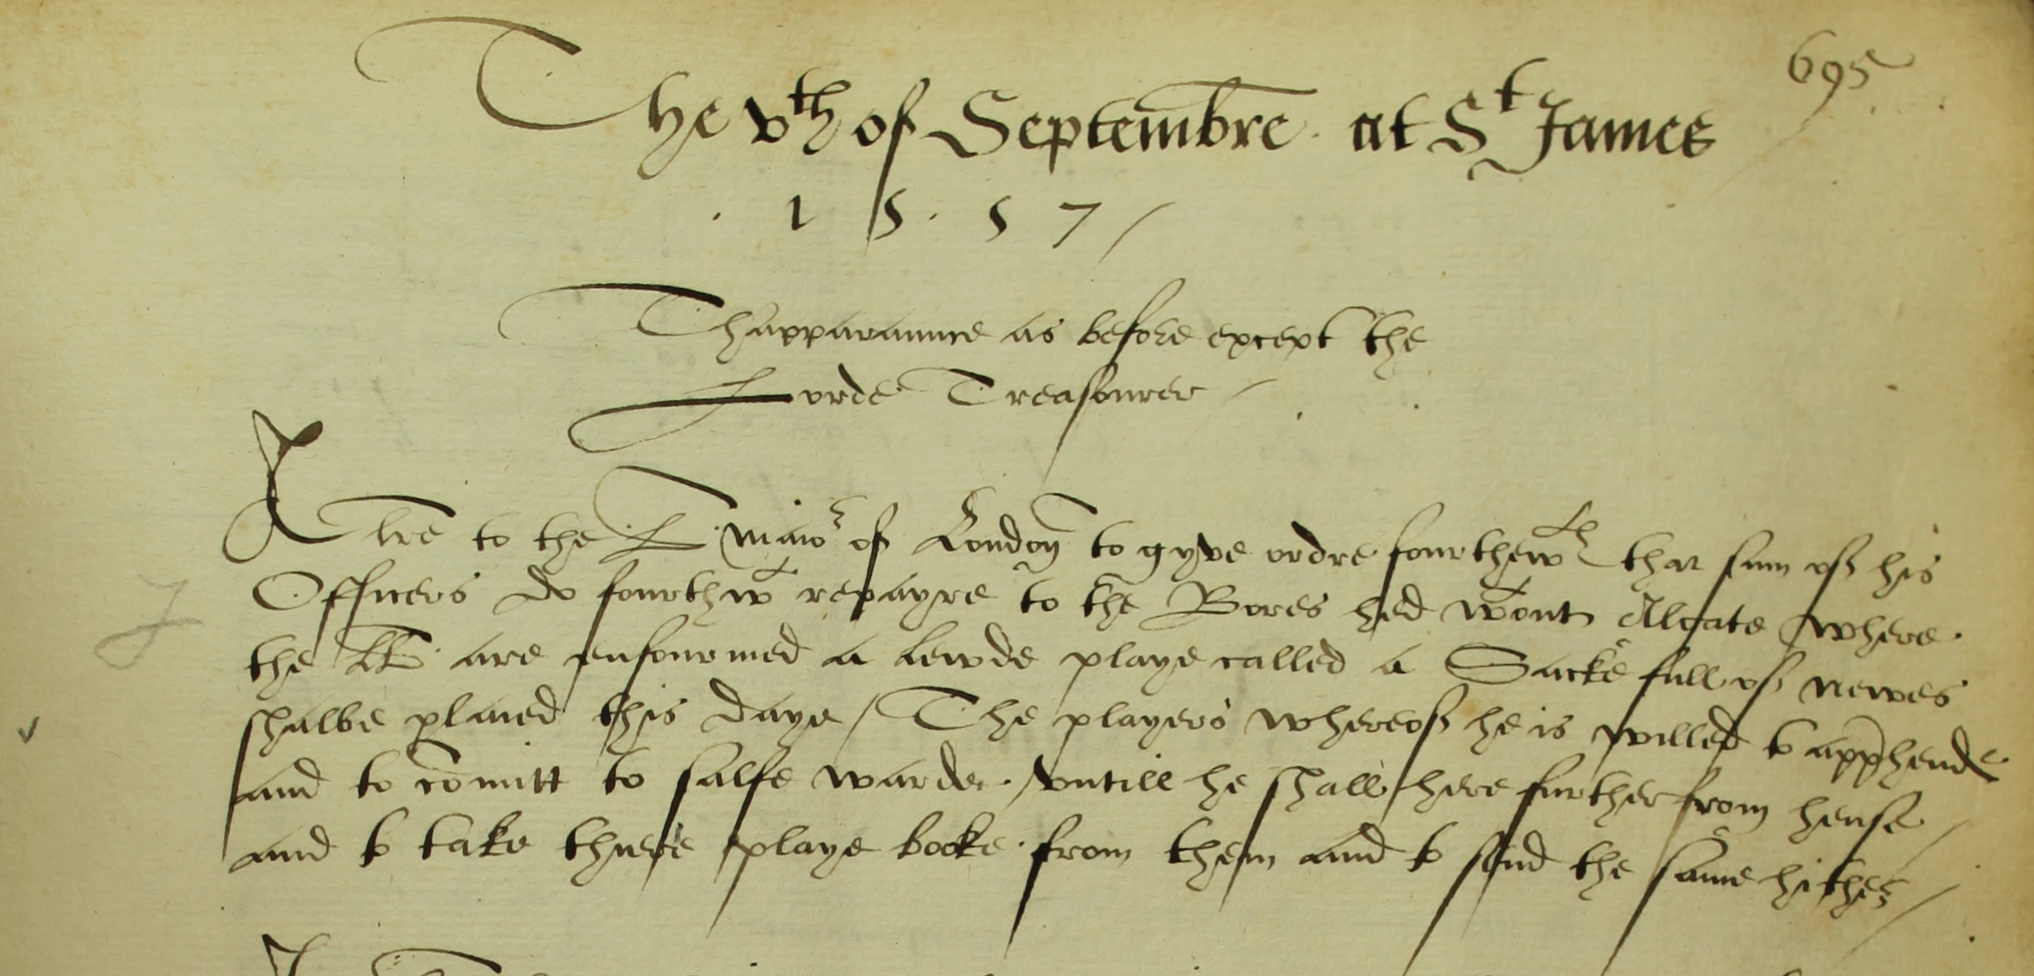 695
The vth of Septembre at St James
. 1 5 . 5 7 /
Thapparaunce as before except the
Lorde Treasourer /
A lre to the L. maior of London to gyve ordre fourthewth that sum of his
Officers do fourthwt repayre to the Bores hed wtout Algate where
the LL. are enfourmed a lewde playe called a Sacke full of newes
shalbe plaied this daye / The players whereof he is willed to apprhende
and to comitt to salfe warde. / vntill he shall here further from hense /
and to take there playe booke from them and to send the same hither /